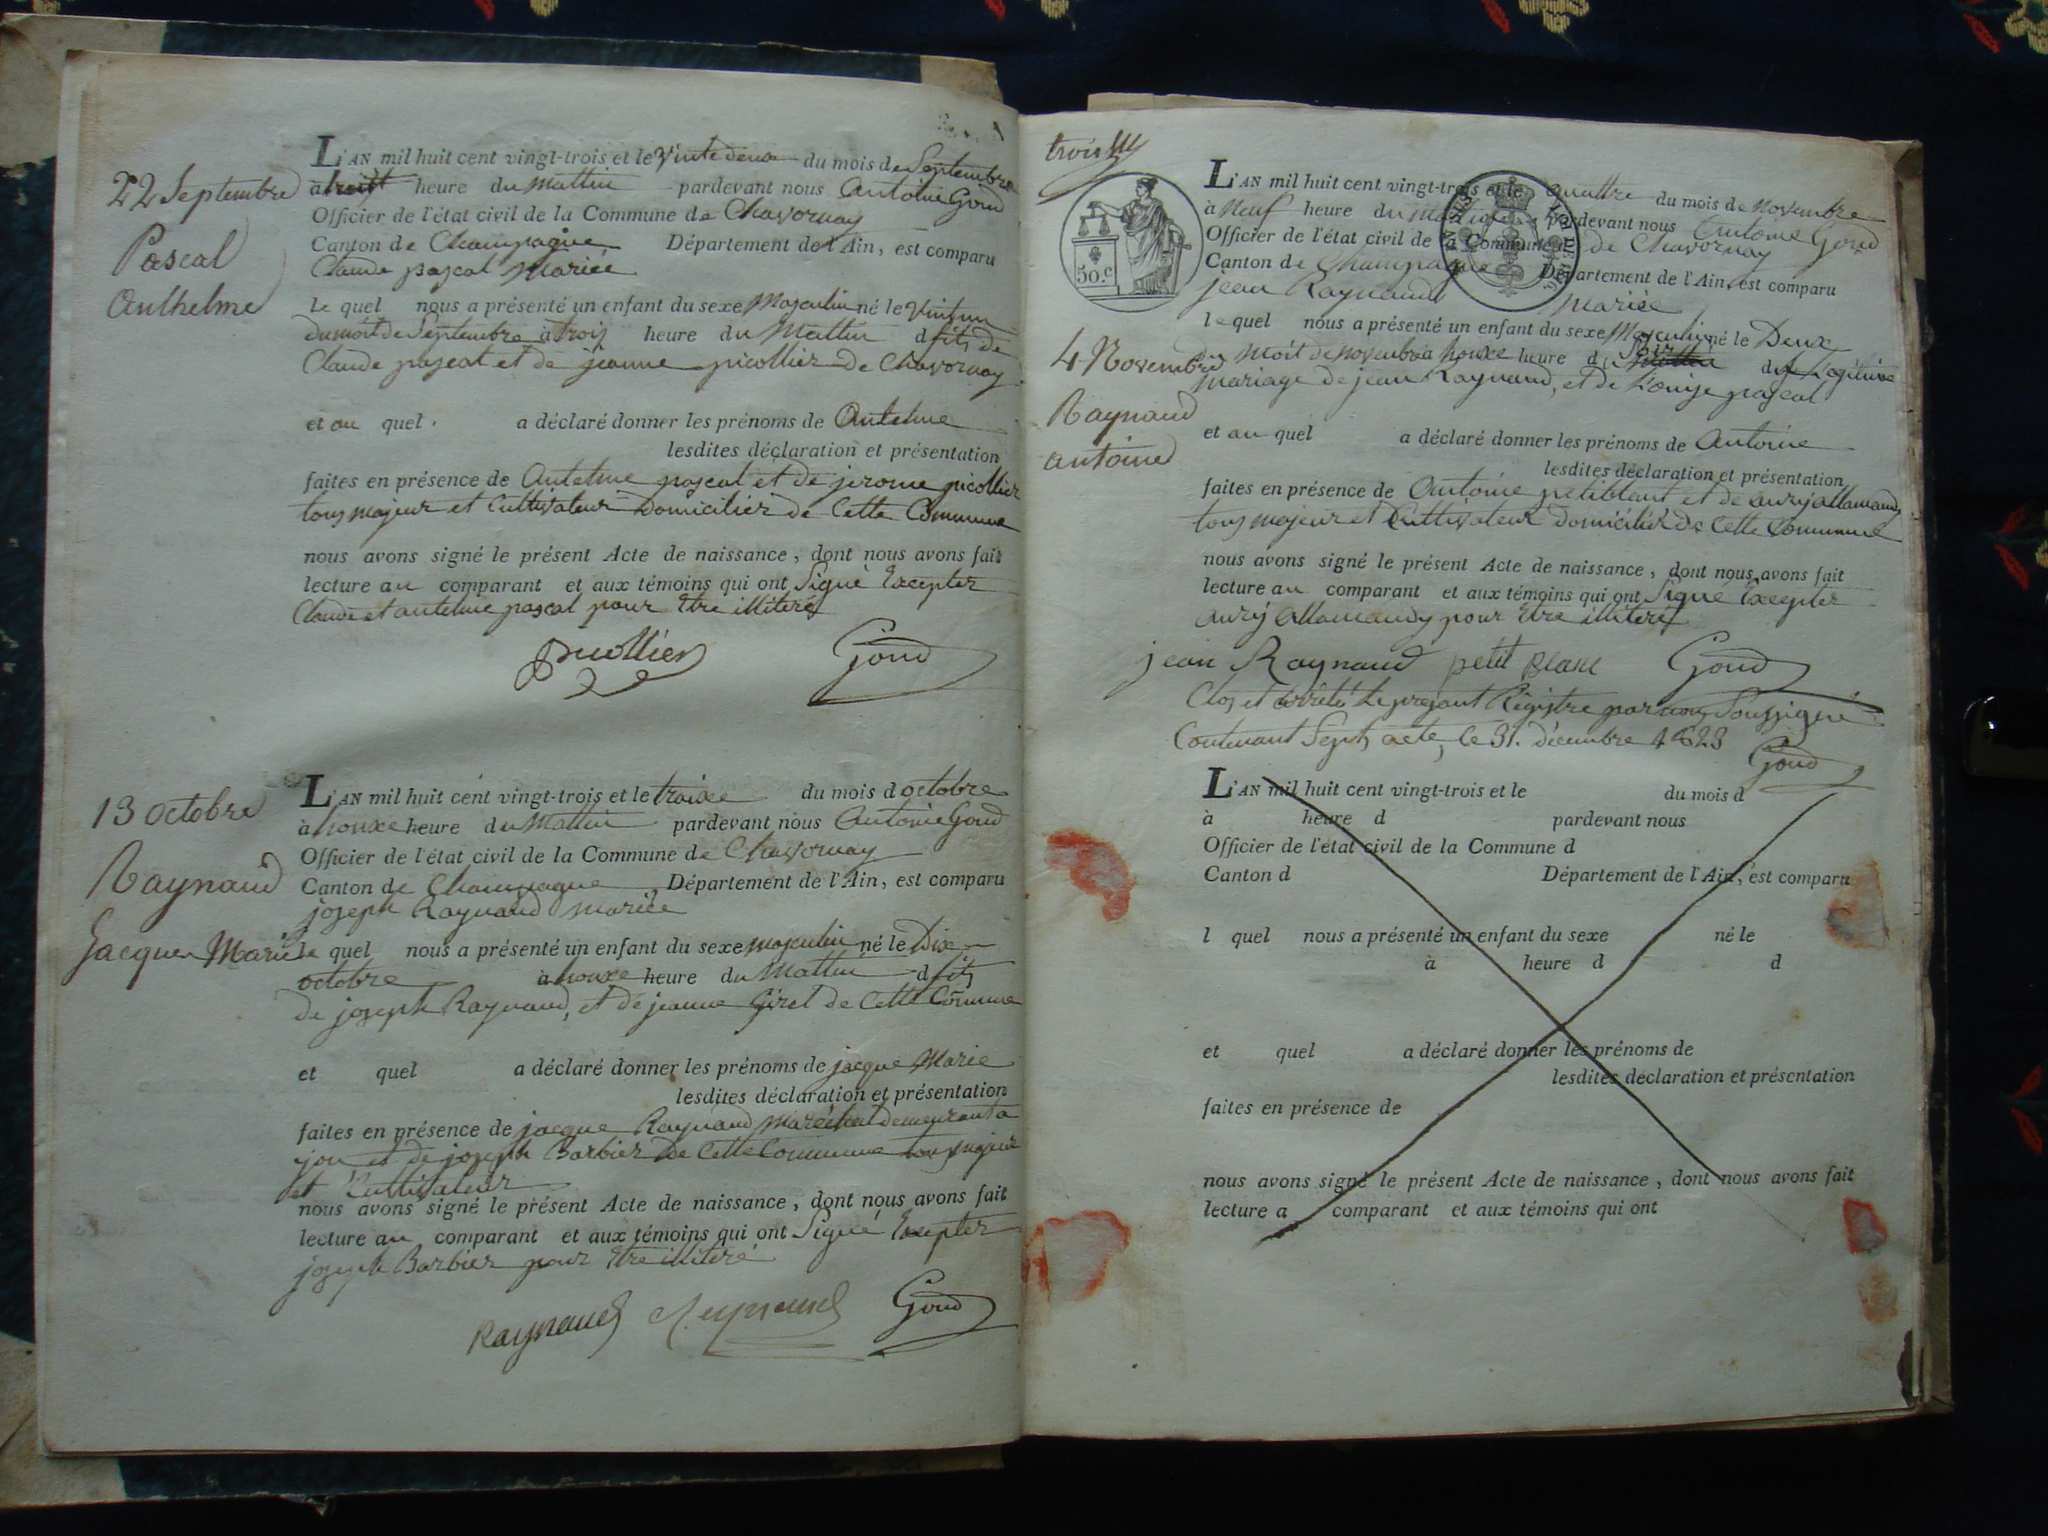 22 Septembre
Pascal
Anthelme
L'AN mil huit cent vingt-trois et le vinte deux du mois de Septembre
à heure du mattin pardevant nous Antoine Goud
Officier de l'état civil de la Commune de Chavornay
Canton de Champagne Département de l'Ain, est comparu
Claude pascal mariée
Le quel nous a présenté un enfant du sexe Masculin né le vint un
du moit de Septembre à trois heure du Mattin d fits de
Claude pascal et de jeanne picollier de Chavornay
et au quel a déclaré donner les prénoms de Antelme
lesdites déclaration et présentation
faites en présence de Antelme pascal et de jerome picollier
tous majeur et Cultivateur Domicilier de Cette Commune
nous avons signé le présent Acte de naissance, dont nous avons fait
lecture au comparant et aux témoins qui ont Signé Excepter
Claude et antelme pascal pour Etre illiteré
picollier Goud
13 octobre
Raynaud
Jacque Marie
L'AN mil huit cent vingt-trois et le treize du mois d octobre
à honze heure du Mattin pardevant nous Antoine Goud
Officier de l'état civil de la Commune de Chavornay
Canton de Champagne Département de l'Ain, est comparu
joseph Raynaud mariée
le quel nous a présenté un enfant du sexe masculin né le Dix
octobre à honze heure du Mattin d fits
de joseph Raynaud, et de jeanne Giret de Cette Commune
et quel a déclaré donner les prénoms de jacque Marie
lesdites déclaration et présentation
faites en présence de jacque Raynaud maréchal demeurant a
jou et de joseph Barbier de Cette Commune tous majeur
et Cultivateur
nous avons signé le présent Acte de naissance, dont nous avons fait
lecture au comparant et aux témoins qui ont Signé Excepter
joseph Barbier pour Etre illiteré
Raynaud Reynaud Goud
trois
50.c
4 Novembre
Raynaud
antoine
L'AN mil huit cent vingt-trois et le quattre du mois de novembre
à Neuf heure du mattin pardevant nous Antoine Goud
Officier de l'état civil de la Commune de Chavornay
Canton de Champagne Département de l'Ain, est comparu
jean Raynaud mariée
le quel nous a présenté un enfant du sexe Masculin né le Deux
du moit de novembre à honze heure du Soir mattin du Légitime
mariage de jean Raynaud, et de Louise pascal
et au quel a déclaré donner les prénoms de Antoine
lesdites déclaration et présentation
faites en présence de Antoine petiblant et de aury allamand
tous majeur et Cultivateur Domicilié de Cette Commune
nous avons signé le présent Acte de naissance, dont nous avons fait
lecture au comparant et aux témoins qui ont Signé Excepter
aury allamandy pour Etre illiteré
jean Raynaud petit Blanc Goud
Clos et arrêté le présant Régistre par nous Soussigné
Contenant Sept acte, le 31. décembre 1823
Goud
L'AN mil huit cent vingt-trois et le du mois d
à heure d pardevant nous
Officier de l'état civil de la Commune d
Canton d Département de l'Ain, est comparu
l quel nous a présenté un enfant du sexe né le
à heure d d
et quel a déclaré donner les prénoms de
lesdites déclaration et présentation
faites en présence de
nous avons signé le présent Acte de naissance, dont nous avons fait
lecture a comparant et aux témoins qui ont